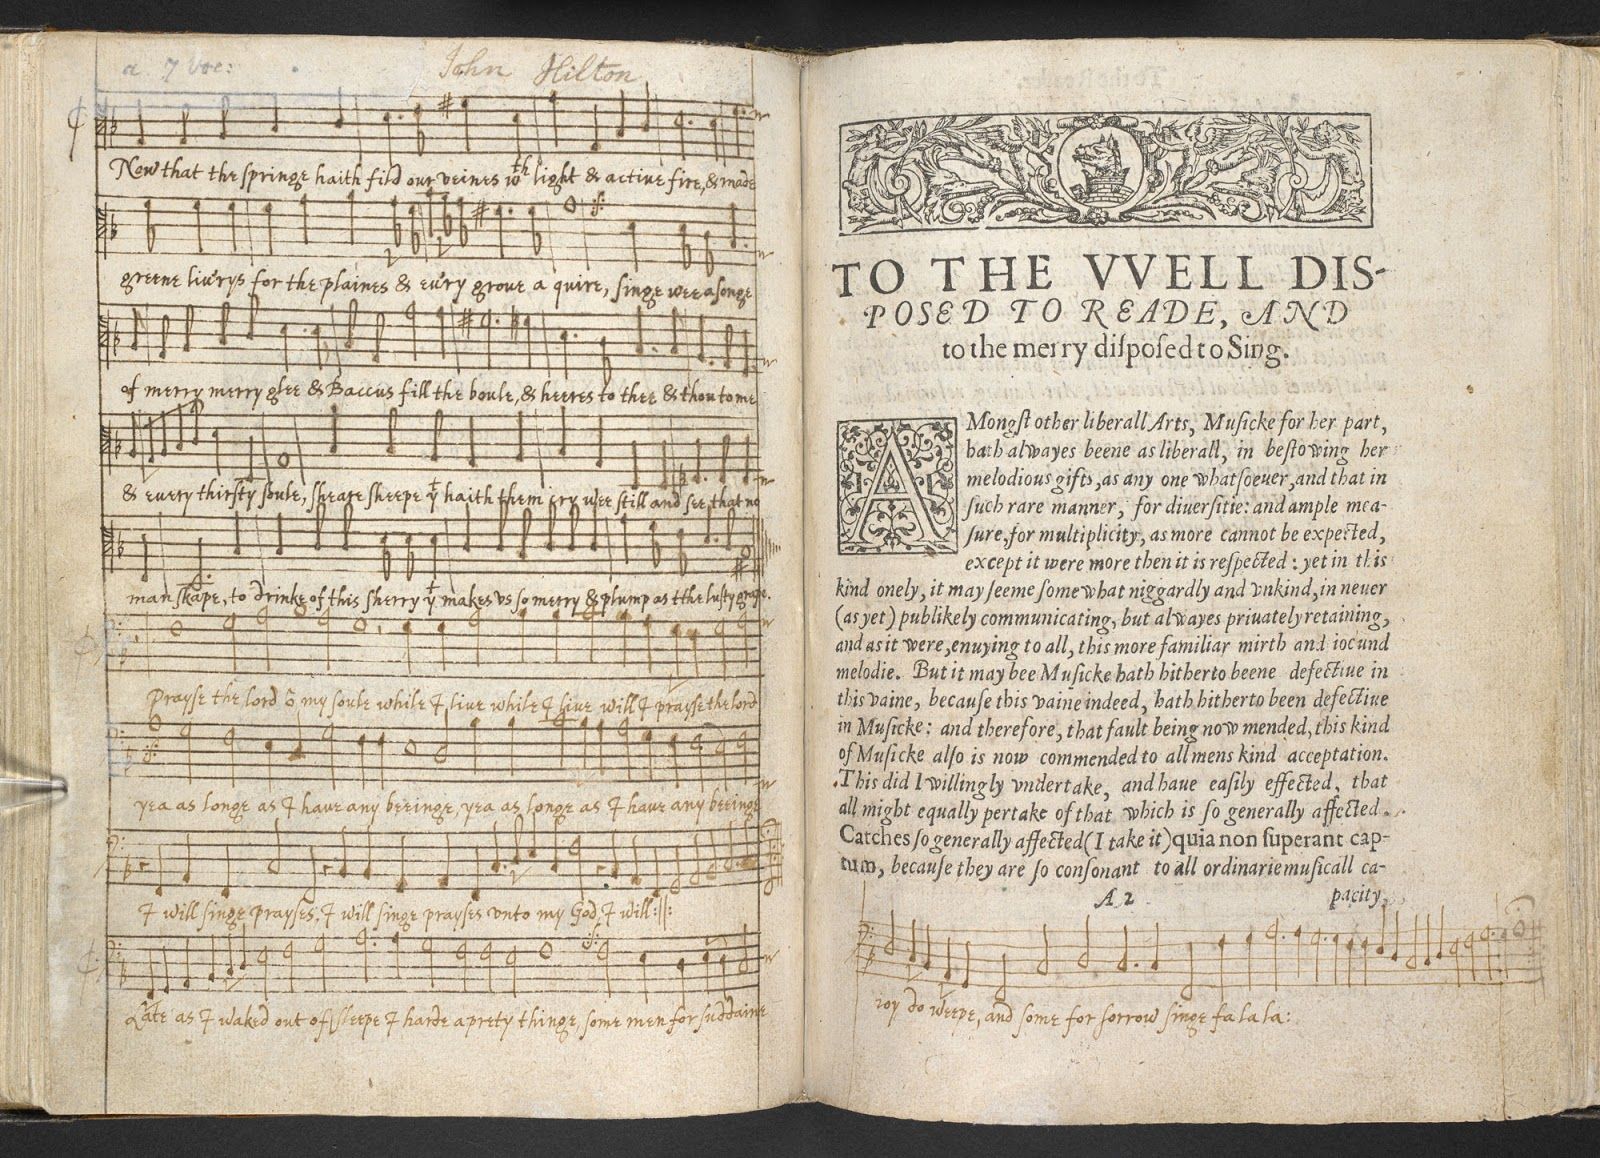 a 7 voc:
John Hilton
Now that the springe haith fild our veines wth light & actiue fire, & made
greene liu'rys for the plaines & eu'ry groue a quire, singe wee a songe
of merry merry glee & Baccus fill the boule, & heeres to thee & thou to me
& euery thirsty soule, sheare sheepe yt haith them cry wee still and see that no
man skape, to drinke of this sherry yt makes vs so merry & plump as the lusty grape.
Prayse the lord ô my soule while I liue while I liue will I prayse the lord
yea as longe as I haue any beeinge, yea as longe as I haue any beeinge
I will singe prayses, I will singe prayses vnto my God, I will :||:
Late as I waked out of sleepe I harde a prety thinge, some men for suddaine
TO THE VVELL DIS-
POSED TO READE, AND
to the merry diſpoſed to Sing.
AMongſt other liberall Arts, Muſicke for her part,
hath alwayes beene as liberall, in beſtowing her
melodious gifts, as any one whatſoeuer, and that in
ſuch rare manner, for diuerſitie: and ample mea-
ſure, for multiplicity, as more cannot be expected,
except it were more then it is reſpected: yet in this
kind onely, it may ſeeme ſomewhat niggardly and vnkind, in neuer
(as yet) publikely communicating, but alwayes priuately retaining,
and as it were, enuying to all, this more familiar mirth and iocund
melodie. But it may bee Muſicke hath hitherto beene defectiue in
this vaine, becauſe this vaine indeed, hath hitherto been defectiue
in Muſicke: and therefore, that fault being now mended, this kind
of Muſicke alſo is now commended to all mens kind acceptation.
This did I willingly vndertake, and haue eaſily effected, that
all might equally pertake of that which is ſo generally affected.
Catches ſo generally affected (I take it) quia non ſuperant cap-
tum, becauſe they are ſo conſonant to all ordinarie muſicall ca-
A 2 pacity
ioy do weepe, and some for sorrow singe fa la la: